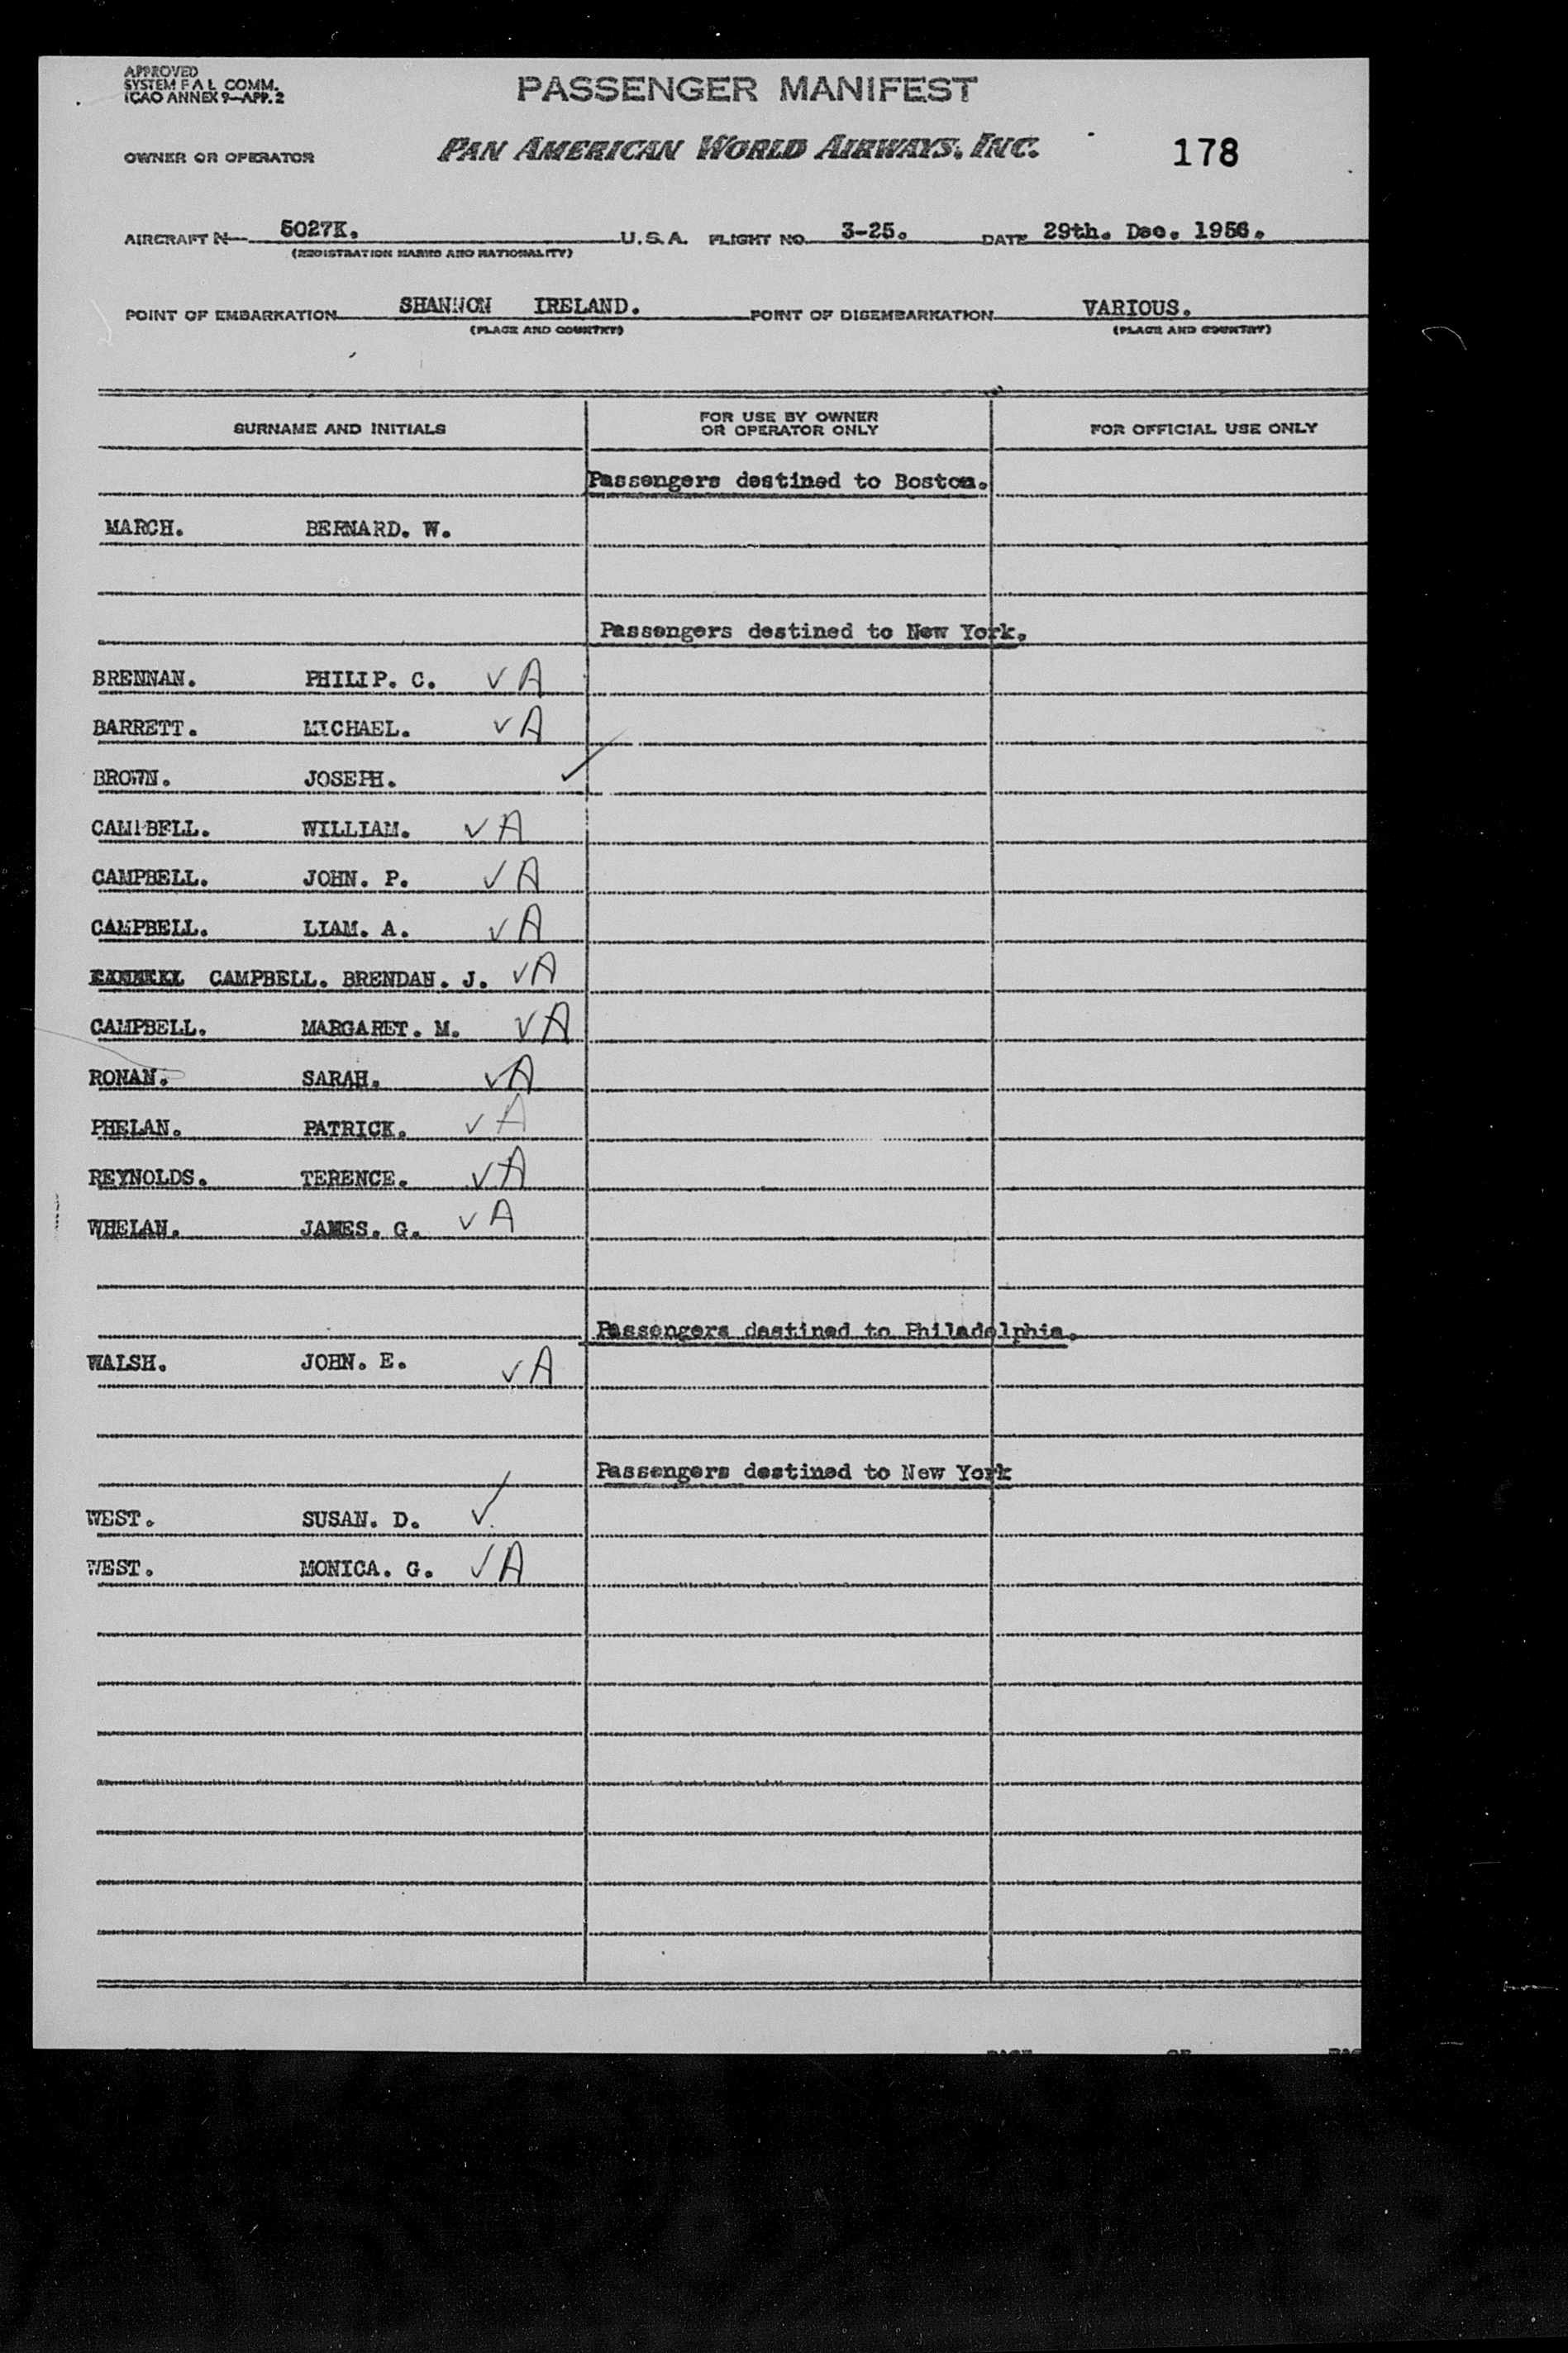 APPROVED
SYSTEM F A L COMM.
ICAO ANNEX 9—APP. 2
PASSENGER MANIFEST
OWNER OR OPERATOR PAN AMERICAN WORLD AIRWAYS, INC. 178
AIRCRAFT N— 5027K. U.S.A. FLIGHT NO. 3-25. DATE 29th. Dec. 1956.
(REGISTRATION MARKS AND NATIONALITY)
POINT OF EMBARKATION SHANNON IRELAND. POINT OF DISEMBARKATION VARIOUS.
(PLACE AND COUNTRY) (PLACE AND COUNTRY)
SURNAME AND INITIALS FOR USE BY OWNER OR OPERATOR ONLY FOR OFFICIAL USE ONLY
Passengers destined to Boston.
MARCH. BERNARD. W.
Passengers destined to New York.
BRENNAN. PHILIP. C. ✓ A
BARRETT. MICHAEL. ✓ A
BROWN. JOSEPH. ✓
CAMPBELL. WILLIAM. ✓ A
CAMPBELL. JOHN. P. ✓ A
CAMPBELL. LIAM. A. ✓ A
CAMPBELL. BRENDAN. J. ✓ A
CAMPBELL. MARGARET. M. ✓ A
RONAN. SARAH. ✓ A
PHELAN. PATRICK. ✓ A
REYNOLDS. TERENCE. ✓ A
WHELAN. JAMES. G. ✓ A
Passengers destined to Philadelphia.
WALSH. JOHN. E. ✓ A
Passengers destined to New York
WEST. SUSAN. D. ✓
WEST. MONICA. G. ✓ A